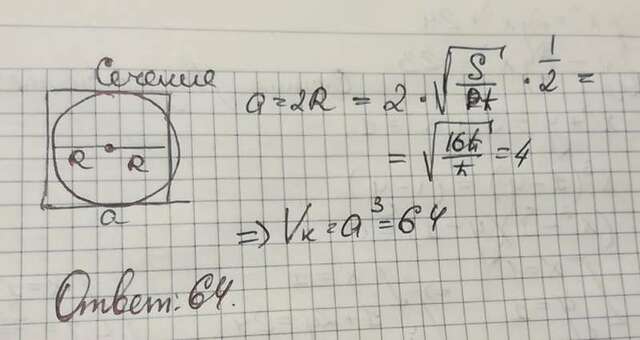 Сечение
a = 2R = 2 · √(S/π) · 1/2 =
= √(16π/π) = 4
R R
a
=> Vк = a³ = 64
Ответ: 64.